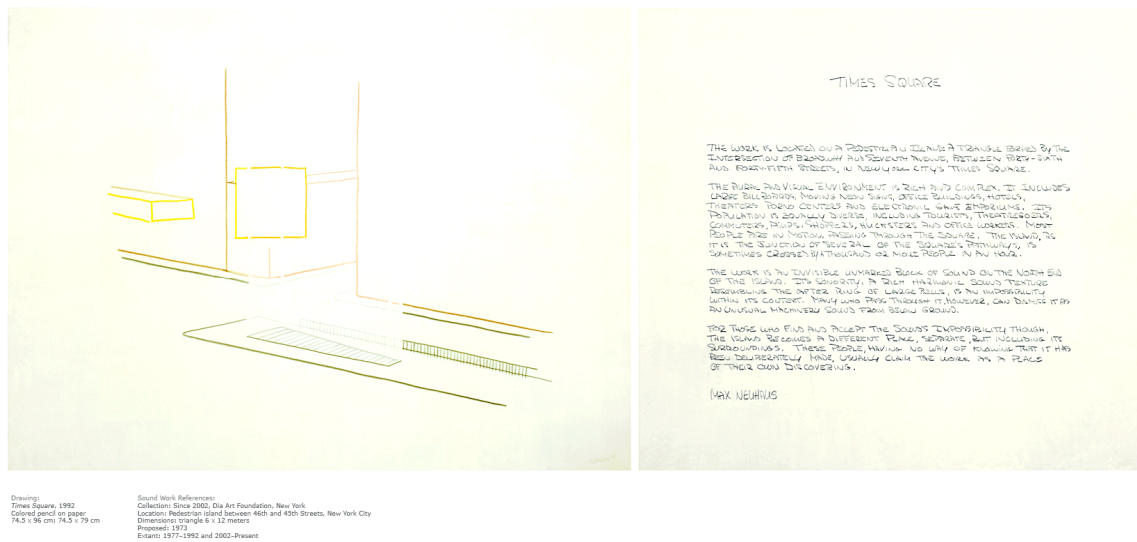 TIMES SQUARE
THE WORK IS LOCATED ON A PEDESTRIAN ISLAND: A TRIANGLE FORMED BY THE
INTERSECTION OF BROADWAY AND SEVENTH AVENUE, BETWEEN FORTY-SIXTH
AND FORTY-FIFTH STREETS, IN NEW YORK CITY'S TIMES SQUARE.
THE AURAL AND VISUAL ENVIRONMENT IS RICH AND COMPLEX. IT INCLUDES
LARGE BILLBOARDS, MOVING NEON SIGNS, OFFICE BUILDINGS, HOTELS,
THEATERS PORNO CENTERS AND ELECTRONIC GAME EMPORIUMS. ITS
POPULATION IS EQUALLY DIVERSE, INCLUDING TOURISTS, THEATREGOERS,
COMMUTERS, PIMPS, SHOPPERS, HUCKSTERS AND OFFICE WORKERS. MOST
PEOPLE ARE IN MOTION, PASSING THROUGH THE SQUARE. THE ISLAND, AS
IT IS THE JUNCTION OF SEVERAL OF THE SQUARE'S PATHWAYS, IS
SOMETIMES CROSSED BY A THOUSAND OR MORE PEOPLE IN AN HOUR.
THE WORK IS AN INVISIBLE UNMARKED BLOCK OF SOUND ON THE NORTH END
OF THE ISLAND. ITS SONORITY, A RICH HARMONIC SOUND TEXTURE
RESEMBLING THE AFTER RING OF LARGE BELLS, IS AN IMPOSSIBILITY
WITHIN ITS CONTEXT. MANY WHO PASS THROUGH IT, HOWEVER, CAN DISMISS IT AS
AN UNUSUAL MACHINERY SOUND FROM BELOW GROUND.
FOR THOSE WHO FIND AND ACCEPT THE SOUND'S IMPOSSIBILITY THOUGH,
THE ISLAND BECOMES A DIFFERENT PLACE, SEPARATE, BUT INCLUDING ITS
SURROUNDINGS. THESE PEOPLE, HAVING NO WAY OF KNOWING THAT IT HAS
BEEN DELIBERATELY MADE, USUALLY CLAIM THE WORK AS A PLACE
OF THEIR OWN DISCOVERING.
MAX NEUHAUS
Drawing:
Times Square, 1992
Colored pencil on paper
74.5 x 96 cm; 74.5 x 79 cm
Sound Work References:
Collection: Since 2002, Dia Art Foundation, New York
Location: Pedestrian island between 46th and 45th Streets, New York City
Dimensions: triangle 6 x 12 meters
Proposed: 1973
Extant: 1977–1992 and 2002–Present